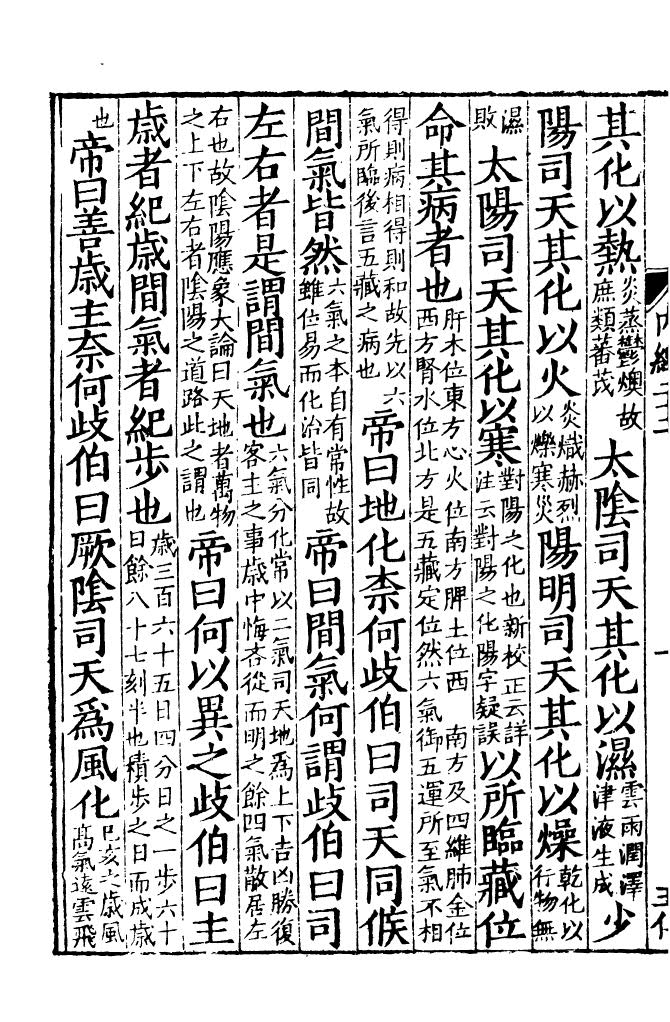 其化以熱炎蒸鬱燠故庶類蕃茂太陰司天其化以濕雲雨潤澤津液生成少
陽司天其化以火炎熾赫烈以爍寒災陽明司天其化以燥乾化以行物無
濕敗太陽司天其化以寒對陽之化也新校正云詳注云對陽之化陽字疑誤以所臨藏位
命其病者也肝木位東方心火位南方脾土位西南方及四維肺金位西方腎水位北方是五藏定位然六氣御五運所至氣不相
得則病相得則和故先以六氣所臨後言五藏之病也帝曰地化柰何歧伯曰司天同候
間氣皆然六氣之本自有常性故雖位易而化治皆同帝曰間氣何謂歧伯曰司
左右者是謂間氣也六氣分化常以二氣司天地爲上下吉凶勝復客主之事歲中悔吝從而明之餘四氣散居左
右也故陰陽應象大論曰天地者萬物之上下左右者陰陽之道路此之謂也帝曰何以異之歧伯曰主
歲者紀歲間氣者紀步也歲三百六十五日四分日之一步六十日餘八十七刻半也積步之日而成歲
也帝曰善歲主奈何歧伯曰厥陰司天爲風化巳亥之歲風高氣遠雲飛